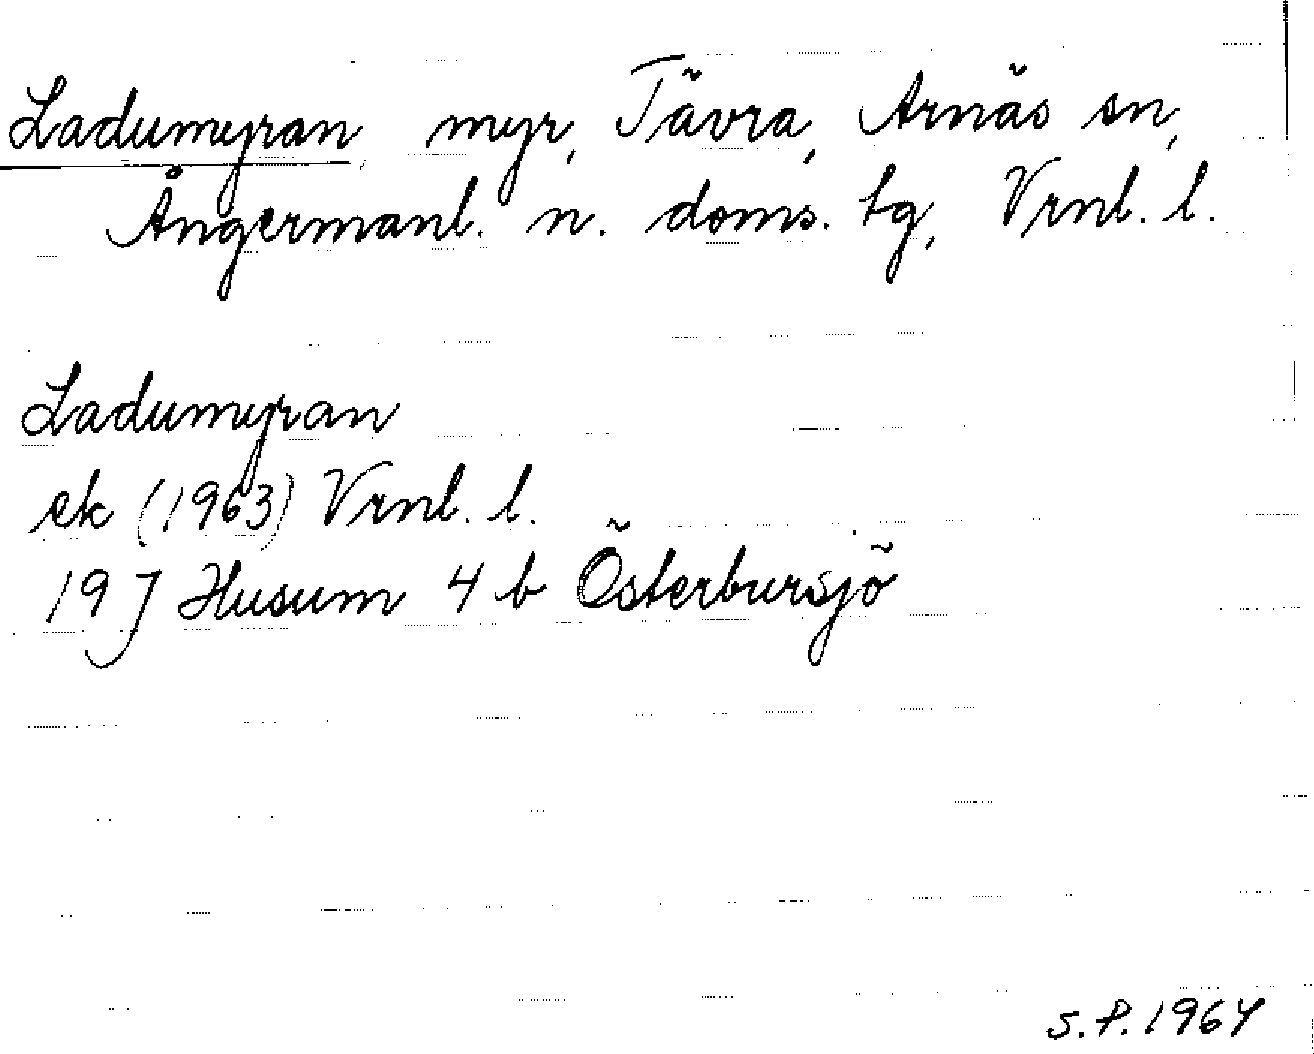 Ladumyran, myr, Tävra, Arnäs sn,
Ångermanl. n. doms. tg, Vrnl. l.
Ladumyran
ek (1963) Vrnl. l.
19 J Husum 4 b Österbursjö
S.P. 1964